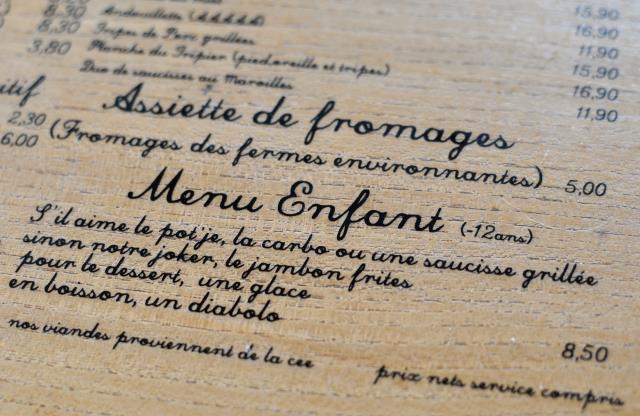 8,30 Andouillette (AAAAA) 15,90
8,30 Tripes de Porc grillées 16,90
3,80 Planche du Tripier (pied,oreille et tripes) 11,90
Duo de saucisses au Maroilles 15,90
16,90
itif Assiette de fromages 11,90
2,30 (Fromages des fermes environnantes) 5,00
6,00
Menu Enfant (-12ans)
S'il aime le potje, la carbo ou une saucisse grillée
sinon notre joker, le jambon frites
pour le dessert, une glace
en boisson, un diabolo
8,50
nos viandes proviennent de la cee
prix nets service compris